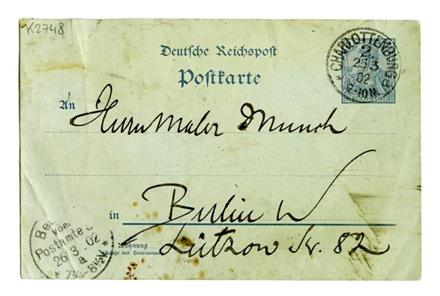 K2748
Deutsche Reichspost
Postkarte
CHARLOTTENBURG
2
25 3
02
8-10N.
An
Herrn Maler Munch
in Berlin W
Wohnung
Lützow Str. 82
vom
Postamte
26 3 02